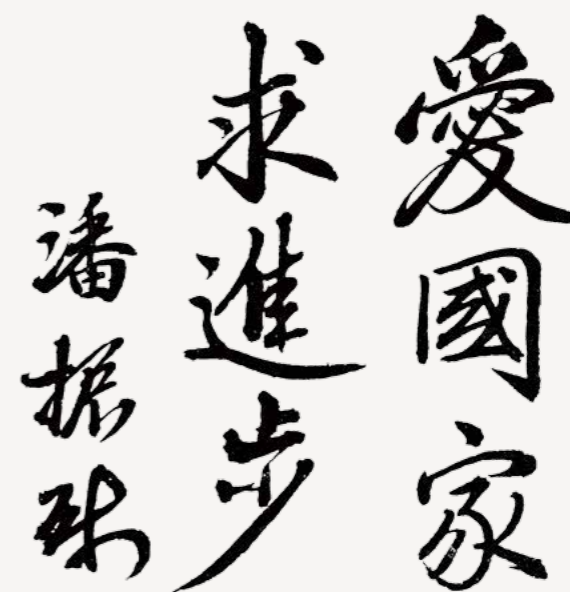 愛國家
求進步
潘振球